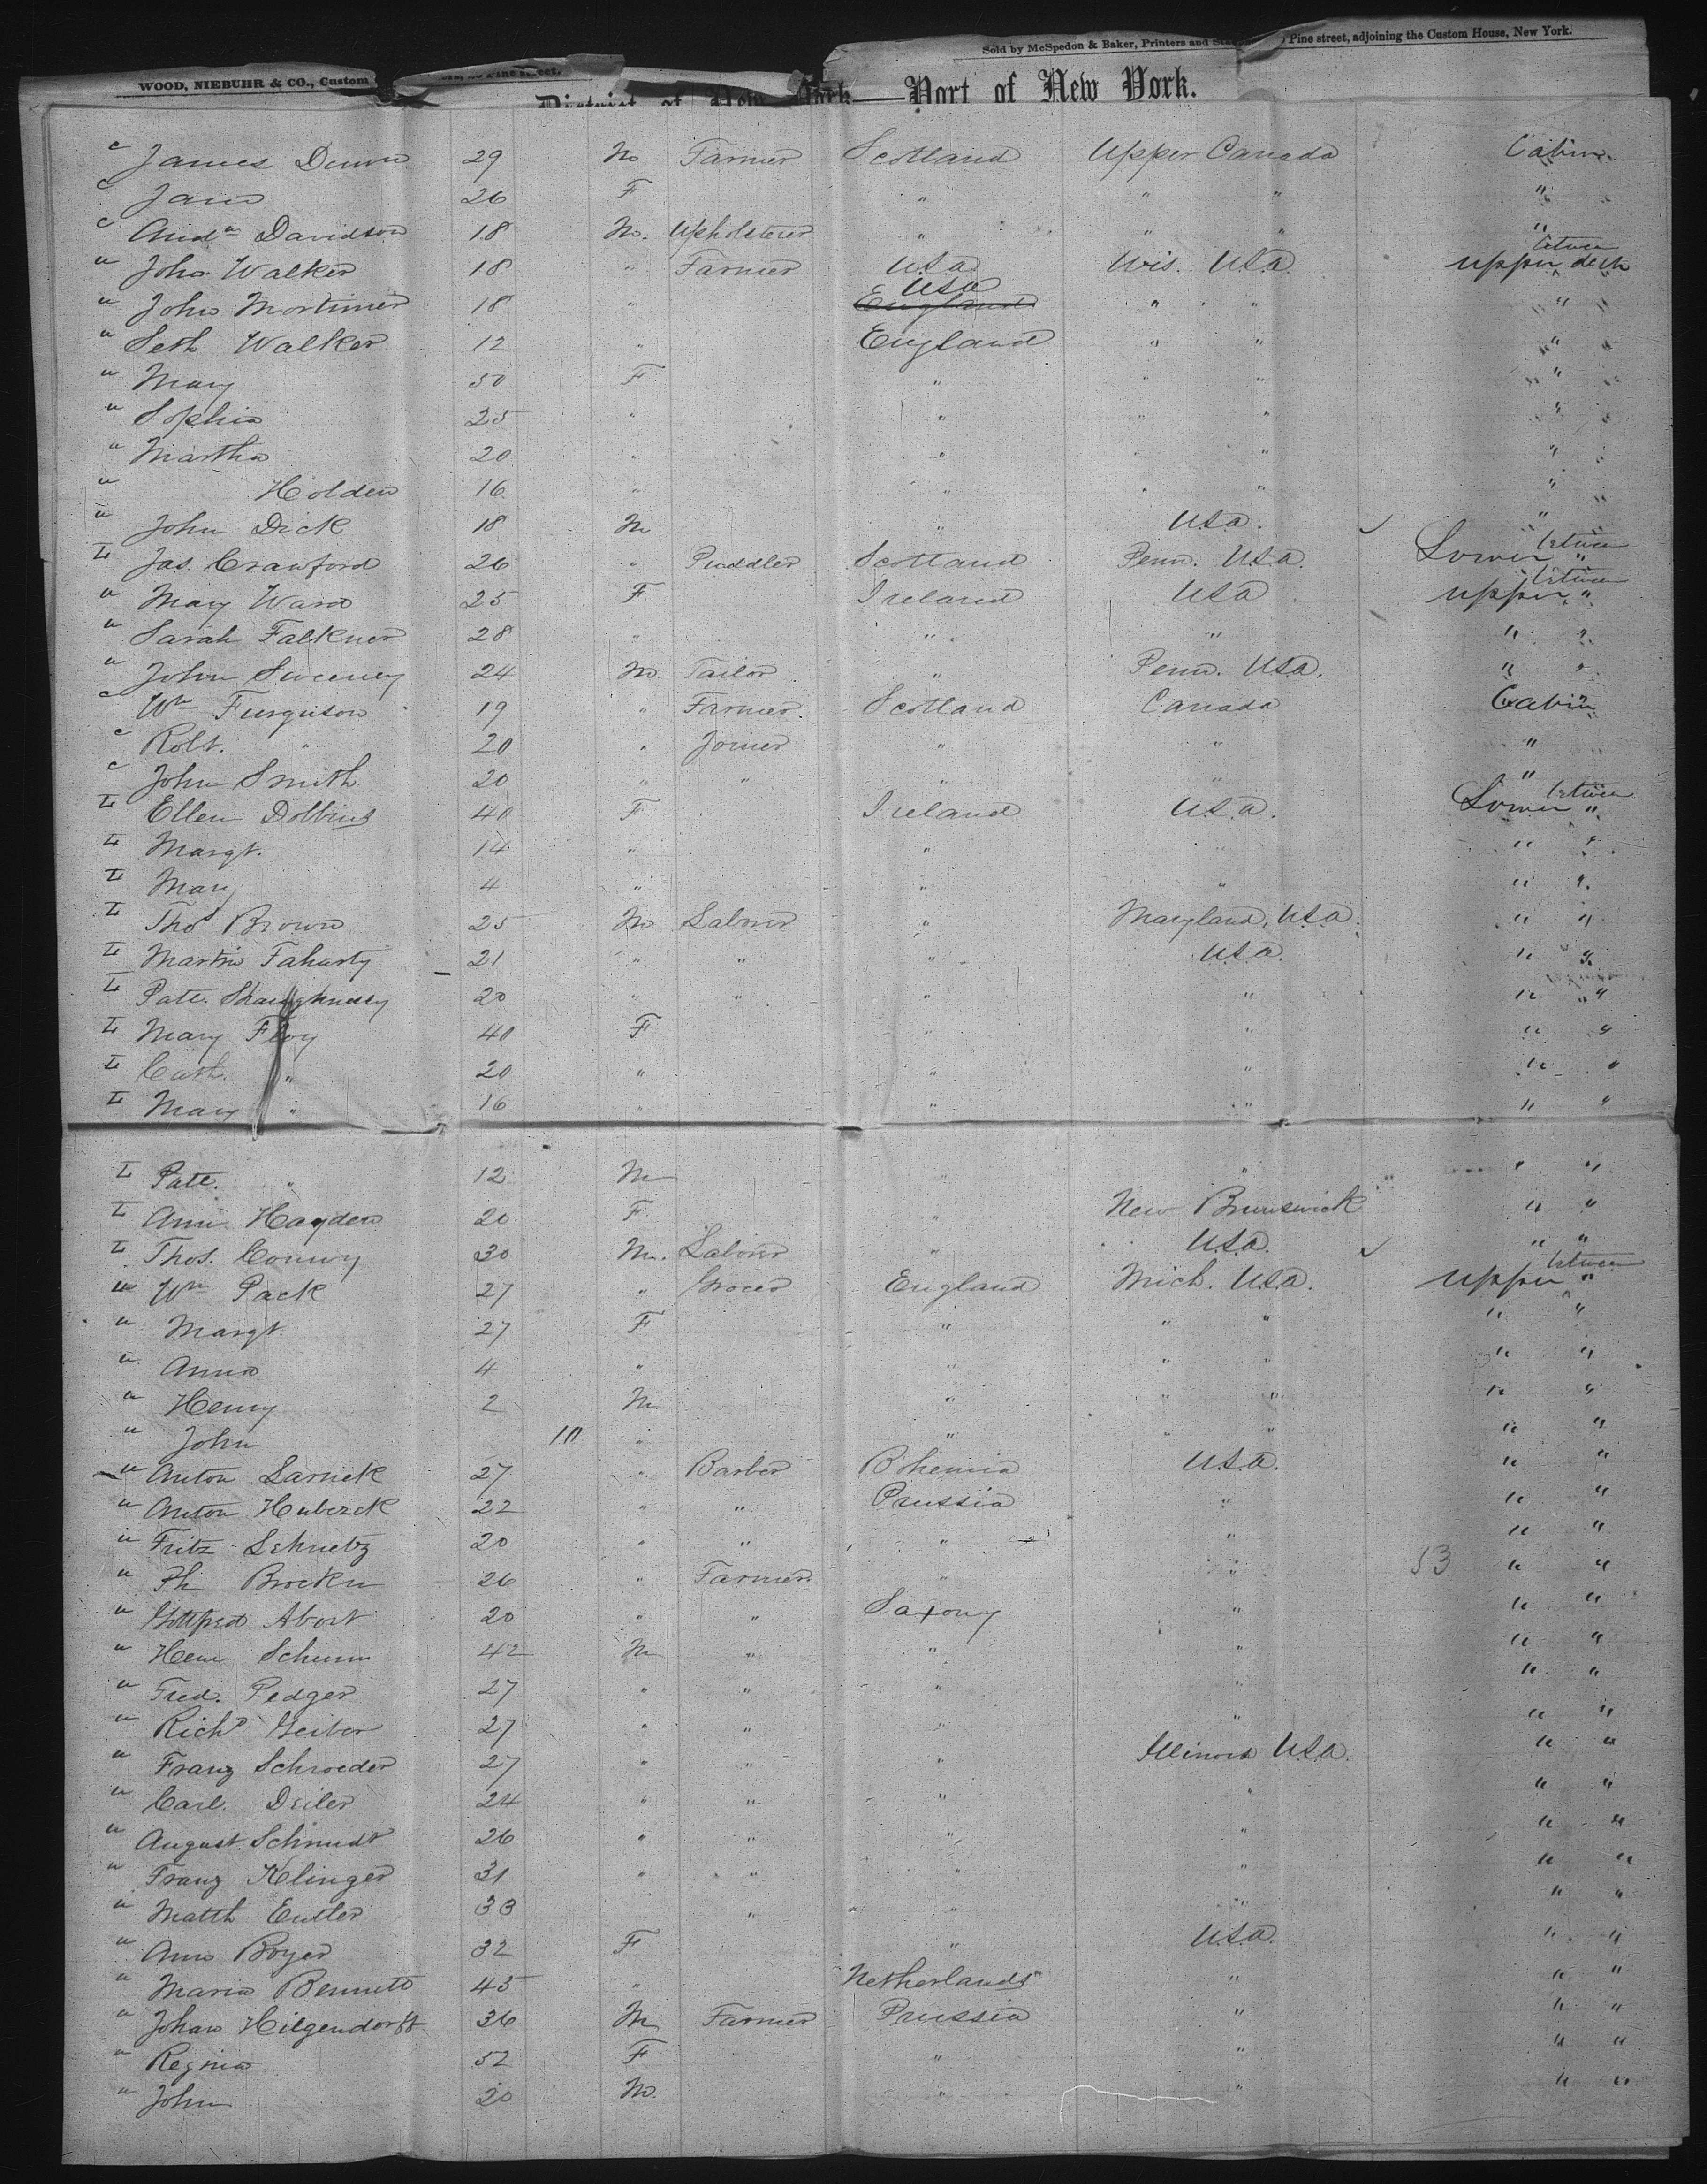 WOOD, NIEBUHR & CO., Custom Pine street.
Sold by McSpedon & Baker, Printers and Pine street, adjoining the Custom House, New York.
District of New York—Port of New York.
c James Dunn 29 M Farmer Scotland Upper Canada Cabin
c Jane 26 F " " " "
c Andw Davidson 18 M. Upholsterer " " " "
u John Walker 18 " Farmer USA Wis. USA. upper between deck
u John Mortimer 18 " USA England " " "
u Seth Walker 12 " England " " "
u Mary 50 F " " " "
u Sophia 25 " " " " "
u Martha 20 " " " " "
u Holden 16 " " " " "
u John Dick 18 M " USA. "
L Jas. Crawford 26 " Puddler Scotland Penn. USA. Lower between "
u Mary Ward 25 F Ireland USA upper between "
u Sarah Falkner 28 " " " " "
u John Sweeney 24 M. Tailor " Penn. USA. " "
c Wm Ferguson 19 " Farmer. Scotland Canada Cabin
c Robt. " 20 " Joiner " " "
c John Smith 20 " " " " "
L Ellen Dobbins 40 F Ireland USA. Lower between "
L Margt. 14 " " " " "
L Mary 4 " " " " "
L Thos Brown 25 M Laborer " Maryland, USA. " "
L Martin Faharty 21 " " " USA. " "
L Patt. Shaughnessy 20 " " " " " "
L Mary Floy 40 F " " " "
L Cath. " 20 " " " " "
L Mary " 16 " " " " "
L Patt. " 12 M " " " "
L Ann Hayden 20 F " New Brunswick " "
L Thos. Conwy 30 M. Laborer " USA. " "
u Wm Pack 27 " Grocer England Mich. USA. upper between "
u Margt. 27 F " " " " "
u Anna 4 " " " " " "
u Henry 2 M " " " " "
u John 10 " " " " " "
u Anton Larnek 27 " Barber Bohemia USA. " "
u Anton Huberek 22 " " Prussia " " "
u Fritz Schuetz 20 " " " " " "
u Ph Brockn 26 " Farmer. " " 53 " "
u Gottfred Abort 20 " " Saxony " " "
u Henr Schumn 42 M " " " " "
u Fred. Pedger 27 " " " " " "
u Richd Geiber 27 " " " " " "
u Franz Schroeder 27 " " " Illinois USA. " "
u Carl. Deiler 24 " " " " " "
u August. Schmidt 26 " " " " " "
u Franz Klinger 31 " " " " " "
u Matth Eutler 33 " " " " "
u Ann Boyer 32 F " USA. " "
u Maria Bennett 45 " Netherlands " " "
u Johan Hilgendorff 36 M Farmer Prussia " " "
u Regina 52 F " " " "
u John 20 M. " " " "